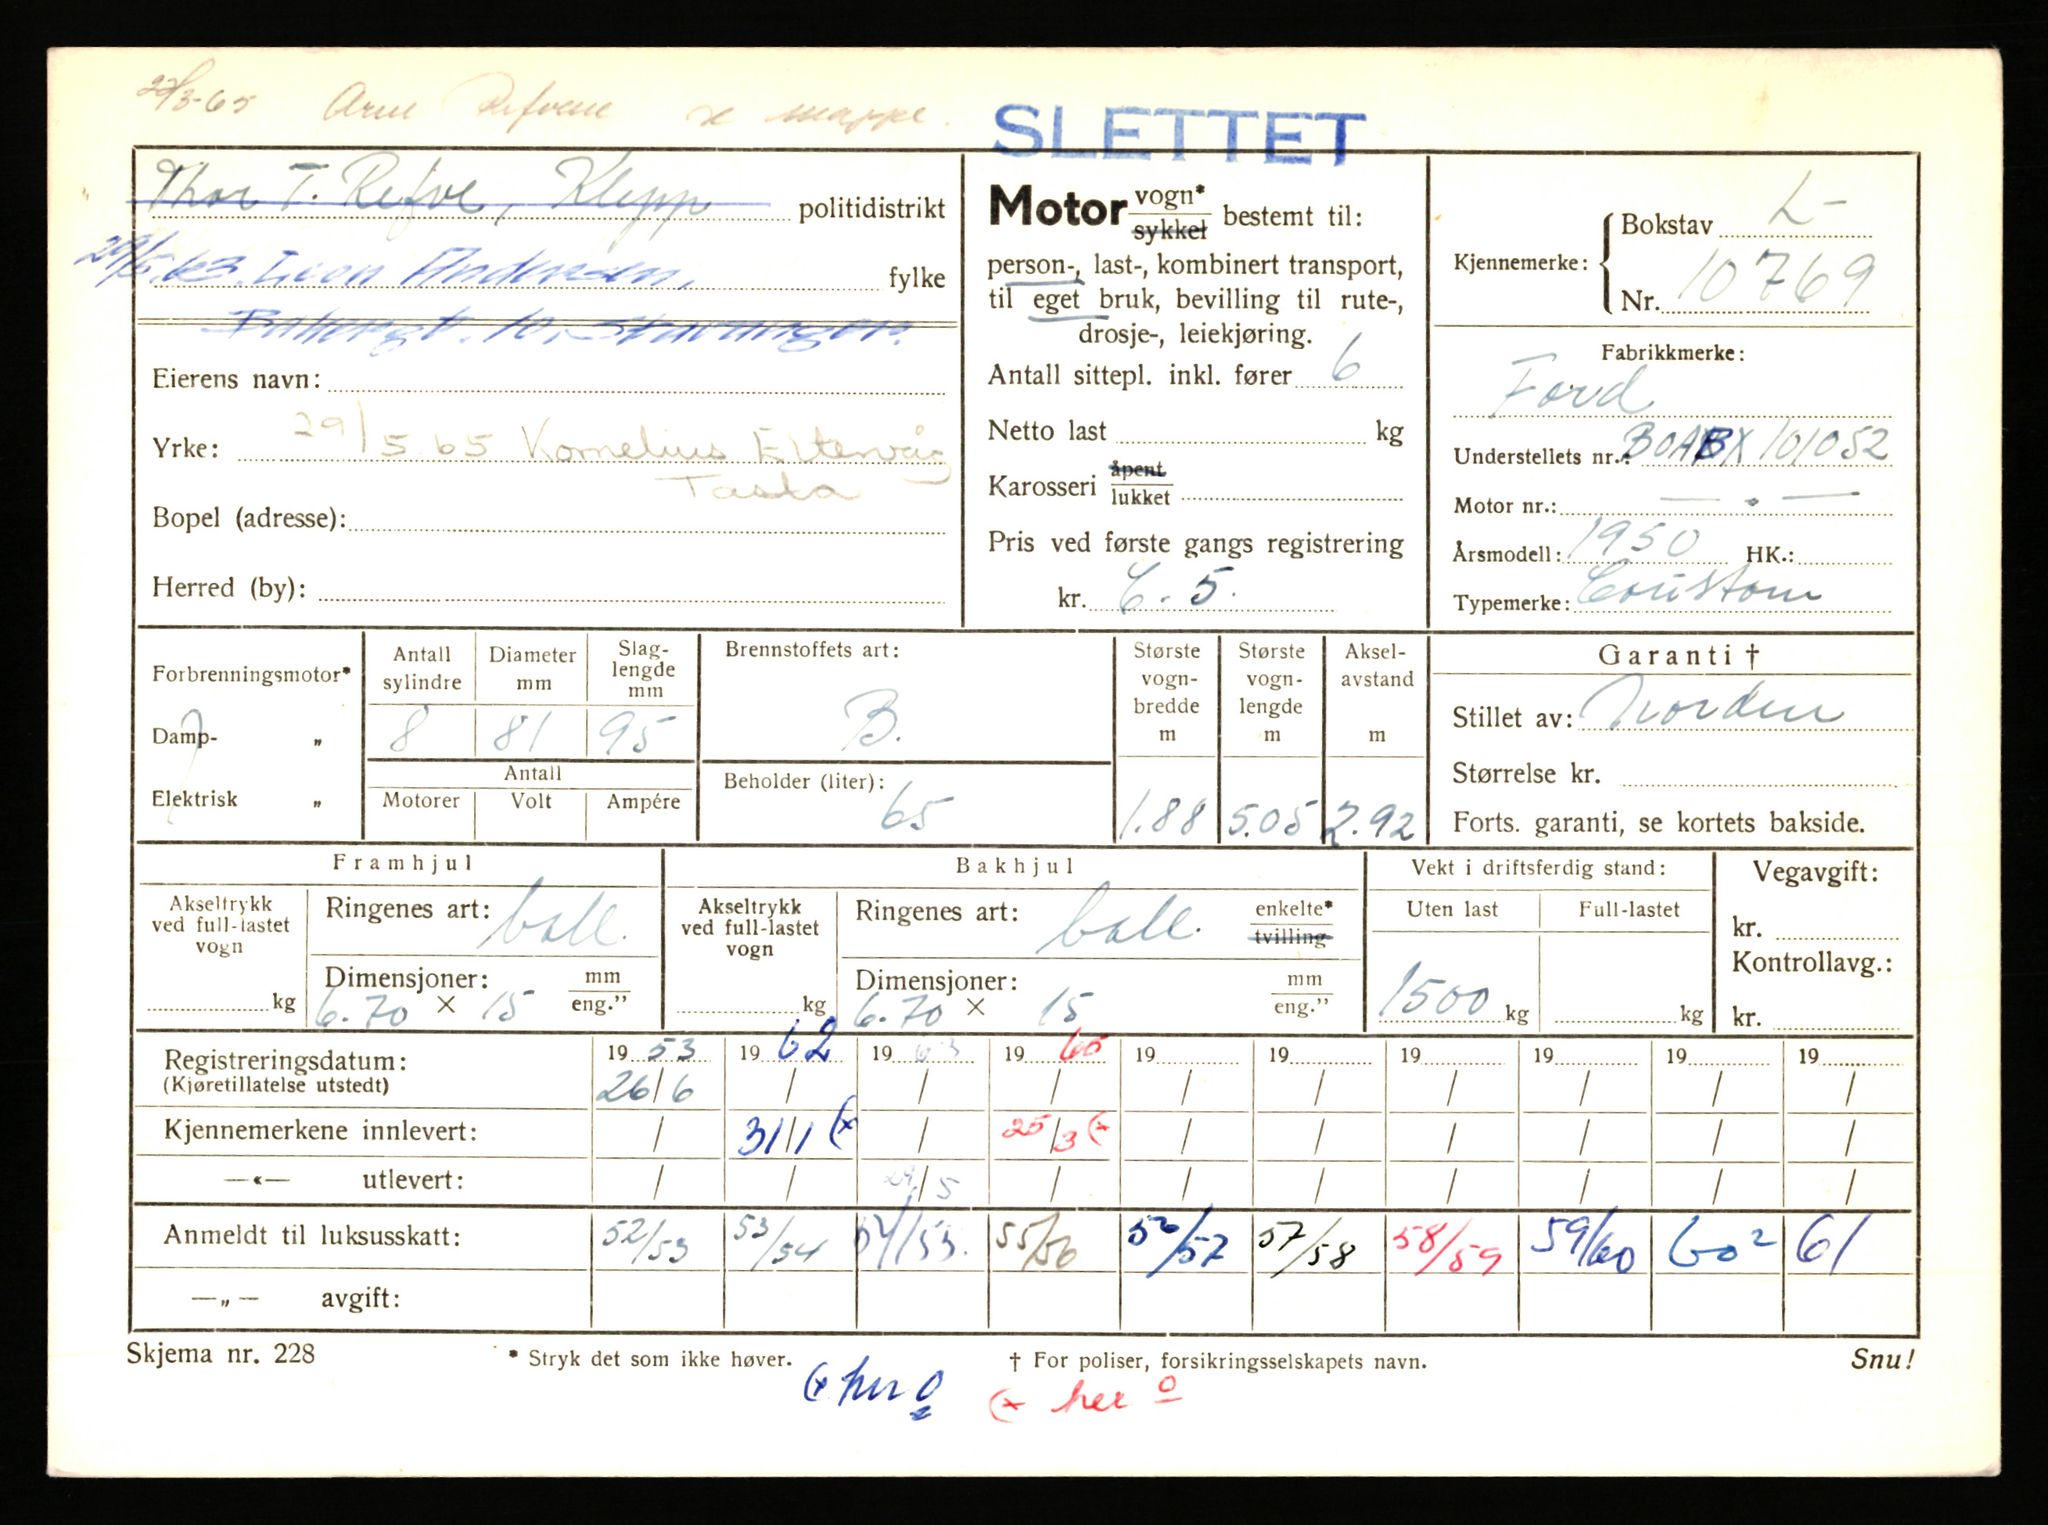 22/3-65 Arne Refvem se mappe.
SLETTET
Thor T. Refve, Klepp politidistrikt
29/5.63. Leon Andersen, fylke
10, Stavanger.
Eierens navn:
Yrke: 29/5 65 Kornelius Eltervåg
Tasta
Bopel (adresse):
Herred (by):
Motor vogn* sykkel bestemt til:
person-, last-, kombinert transport,
til eget bruk, bevilling til rute-,
drosje-, leiekjøring.
Antall sittepl. inkl. fører 6
Netto last kg
Karosseri åpent lukket
Pris ved første gangs registrering
kr. C. 5.
Kjennemerke: Bokstav L-
Nr. 10769
Fabrikkmerke:
Ford
Understellets nr.: BOABX 101052
Motor nr.: — . —
Årsmodell: 1950 HK.:
Typemerke: Coustom
Forbrenningsmotor*
Damp- „
Elektrisk „
Antall sylindre Diameter mm Slaglengde mm
8 81 95
Antall
Motorer Volt Ampére
Brennstoffets art:
B.
Beholder (liter):
65
Største vognbredde m Største vognlengde m Akselavstand m
1.88 5.05 2.92
Garanti †
Stillet av: Norden
Størrelse kr.
Forts. garanti, se kortets bakside.
Framhjul
Akseltrykk ved full-lastet vogn
kg
Ringenes art: ball.
Dimensjoner: mm eng."
6.70 × 15
Bakhjul
Akseltrykk ved full-lastet vogn
kg
Ringenes art: ball. enkelte* tvilling
Dimensjoner: mm eng."
6.70 × 15
Vekt i driftsferdig stand:
Uten last Full-lastet
1500 kg kg
Vegavgift:
kr.
Kontrollavg.:
kr.
Registreringsdatum: 19 53 19 62 19 63 19 65 19 19 19 19 19 19
(Kjøretillatelse utstedt) 26/6 / / / / / / / / /
Kjennemerkene innlevert: / 31/1 (x / 25/3 (x / / / / / /
—«— utlevert: / / 29/5 / / / / / / /
Anmeldt til luksusskatt: 52/53 53/54 54/55. 55/56 56/57 57/58 58/59 59/60 60² 61
—„— avgift:
Skjema nr. 228 * Stryk det som ikke høver. † For poliser, forsikringsselskapets navn. Snu!
(x her o (x her o